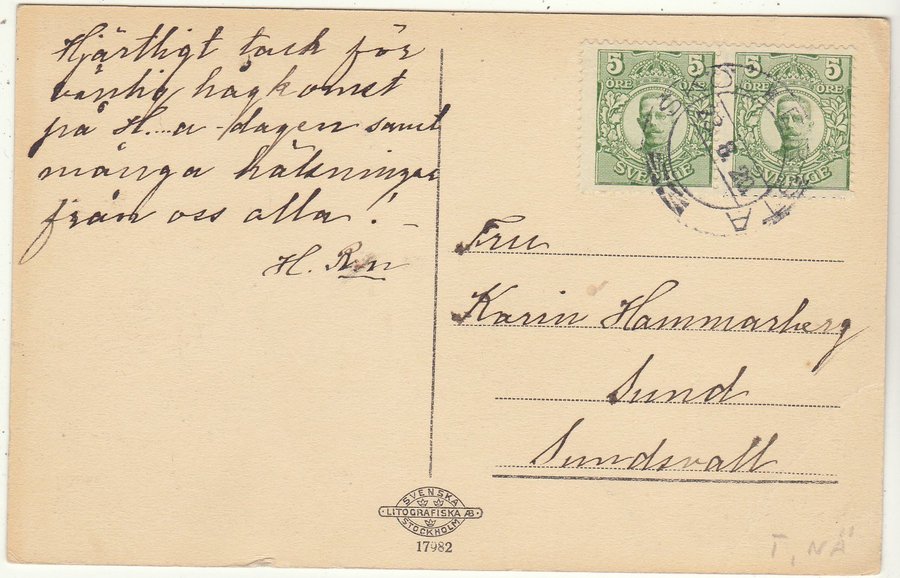 Hjärtligt tack för
vänlig hågkomst
på H....a-dagen samt
många hälsningar
från oss alla!
H. R-n
5 5
ÖRE ÖRE
SVERIGE
5 5
ÖRE ÖRE
SVERIGE
Fru
Karin Hammarberg
Sund
Sundsvall
SVENSKA
LITOGRAFISKA AB.
STOCKHOLM
17982
T, NÄ